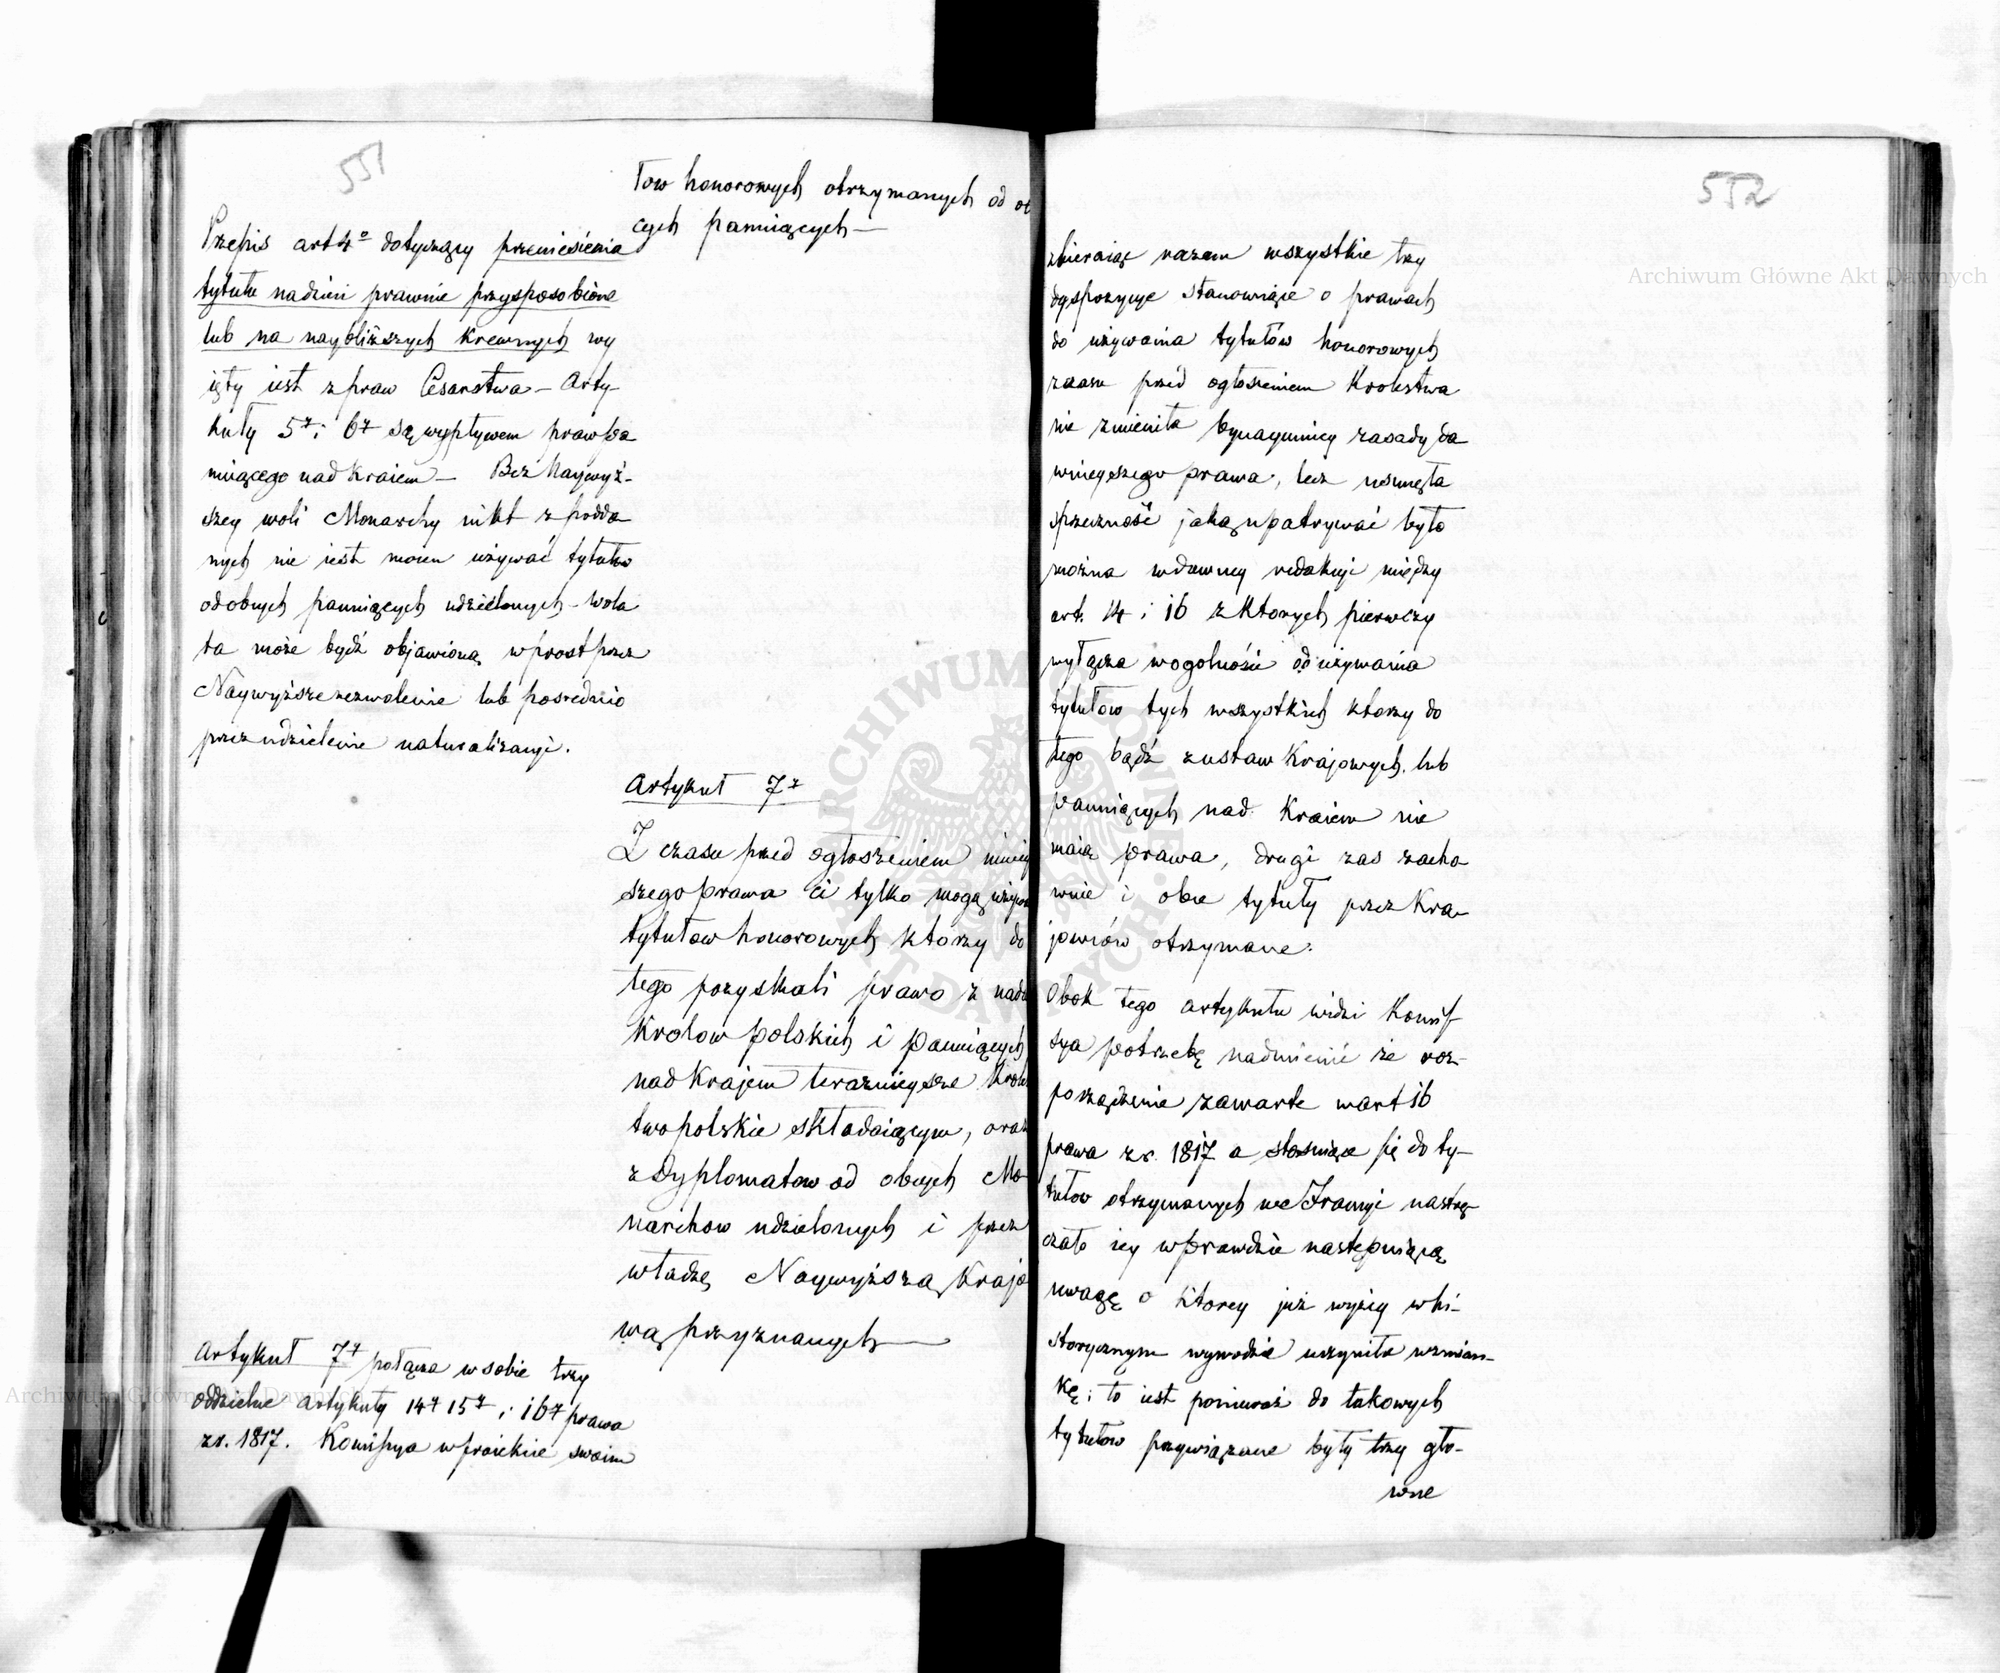 551
Przepis art 4º dotyczący przeniesienia
tytułu na dzieci prawnie przysposobione
lub na naybliższych krewnych wy
ięty iest z praw Cesarstwa – Arty-
kuły 5ty i 6ty są wypływem praw Pa
nuiącego nad Kraiem – Bez Naywyż-
szey woli Monarchy nikt z podda
nych nie iest mocen używać tytułów
od obcych panuiących udzielonych – wola
ta może bydź objawioną wprost przez
Naywyższe zezwolenie lub pośrednio
przez udzielenie naturalizacyi.
Artykuł 7y połącza w sobie trzy
oddzielne artykuły 14y 15y i 16y prawa
z r. 1817. Kommissya w proiekcie swoim
tow honorowych otrzymanych od ob
cych panuiących –
Artykuł 7y
Z czasu przed ogłoszeniem niniey
szego prawa ci tylko mogą używa
tytułow honorowych ktorzy do
tego pozyskali prawo z nada
Krolow polskich i panuiących
nad Krajem teraznieysze Krole
two polskie składaiącym, oraz
z Dyplomatow od obcych Mo-
narchow udzielonych i przez
władzę Naywyższą Krajo
wą przyznanych –
552
zbieraiąc razem wszystkie trzy
dyspozycye stanowiące o prawach
do używania tytułów honorowych
z czasu przed ogłoszeniem Krolestwa
nie zmieniła bynaymniey zasady da
wnieyszego prawa, lecz usunęła
sprzeczność jaką upatrywać było
można w dawney redakcyi między
art. 14 i 16 z ktorych pierwszy
wyłącza wogolności od używania
tytułow tych wszystkich ktorzy do
tego bądź z ustaw Krajowych lub
panuiących nad Kraiem nie
maią prawa, drugi zas zacho-
wuie i obce tytuły przez Kra-
jowców otrzymane.
Obok tego artykułu widzi Komis
sya potrzebę nadmienić że roz-
porządzenie zawarte w art 16
prawa z r. 1817 a stosuiące się do ty-
tułow otrzymanych we Francyi nastrę-
czało iey wprawdzie następuiącą
uwagę o ktorey już wyżey w hi-
storycznym wywodzie uczyniła wzmian-
kę; to iest ponieważ do takowych
tytułow przywiązane były trzy głó-
wne
Archiwum Główne Akt Dawnych
Archiwum Główne Akt Dawnych
ARCHIWUM GŁÓWNE AKT DAWNYCH